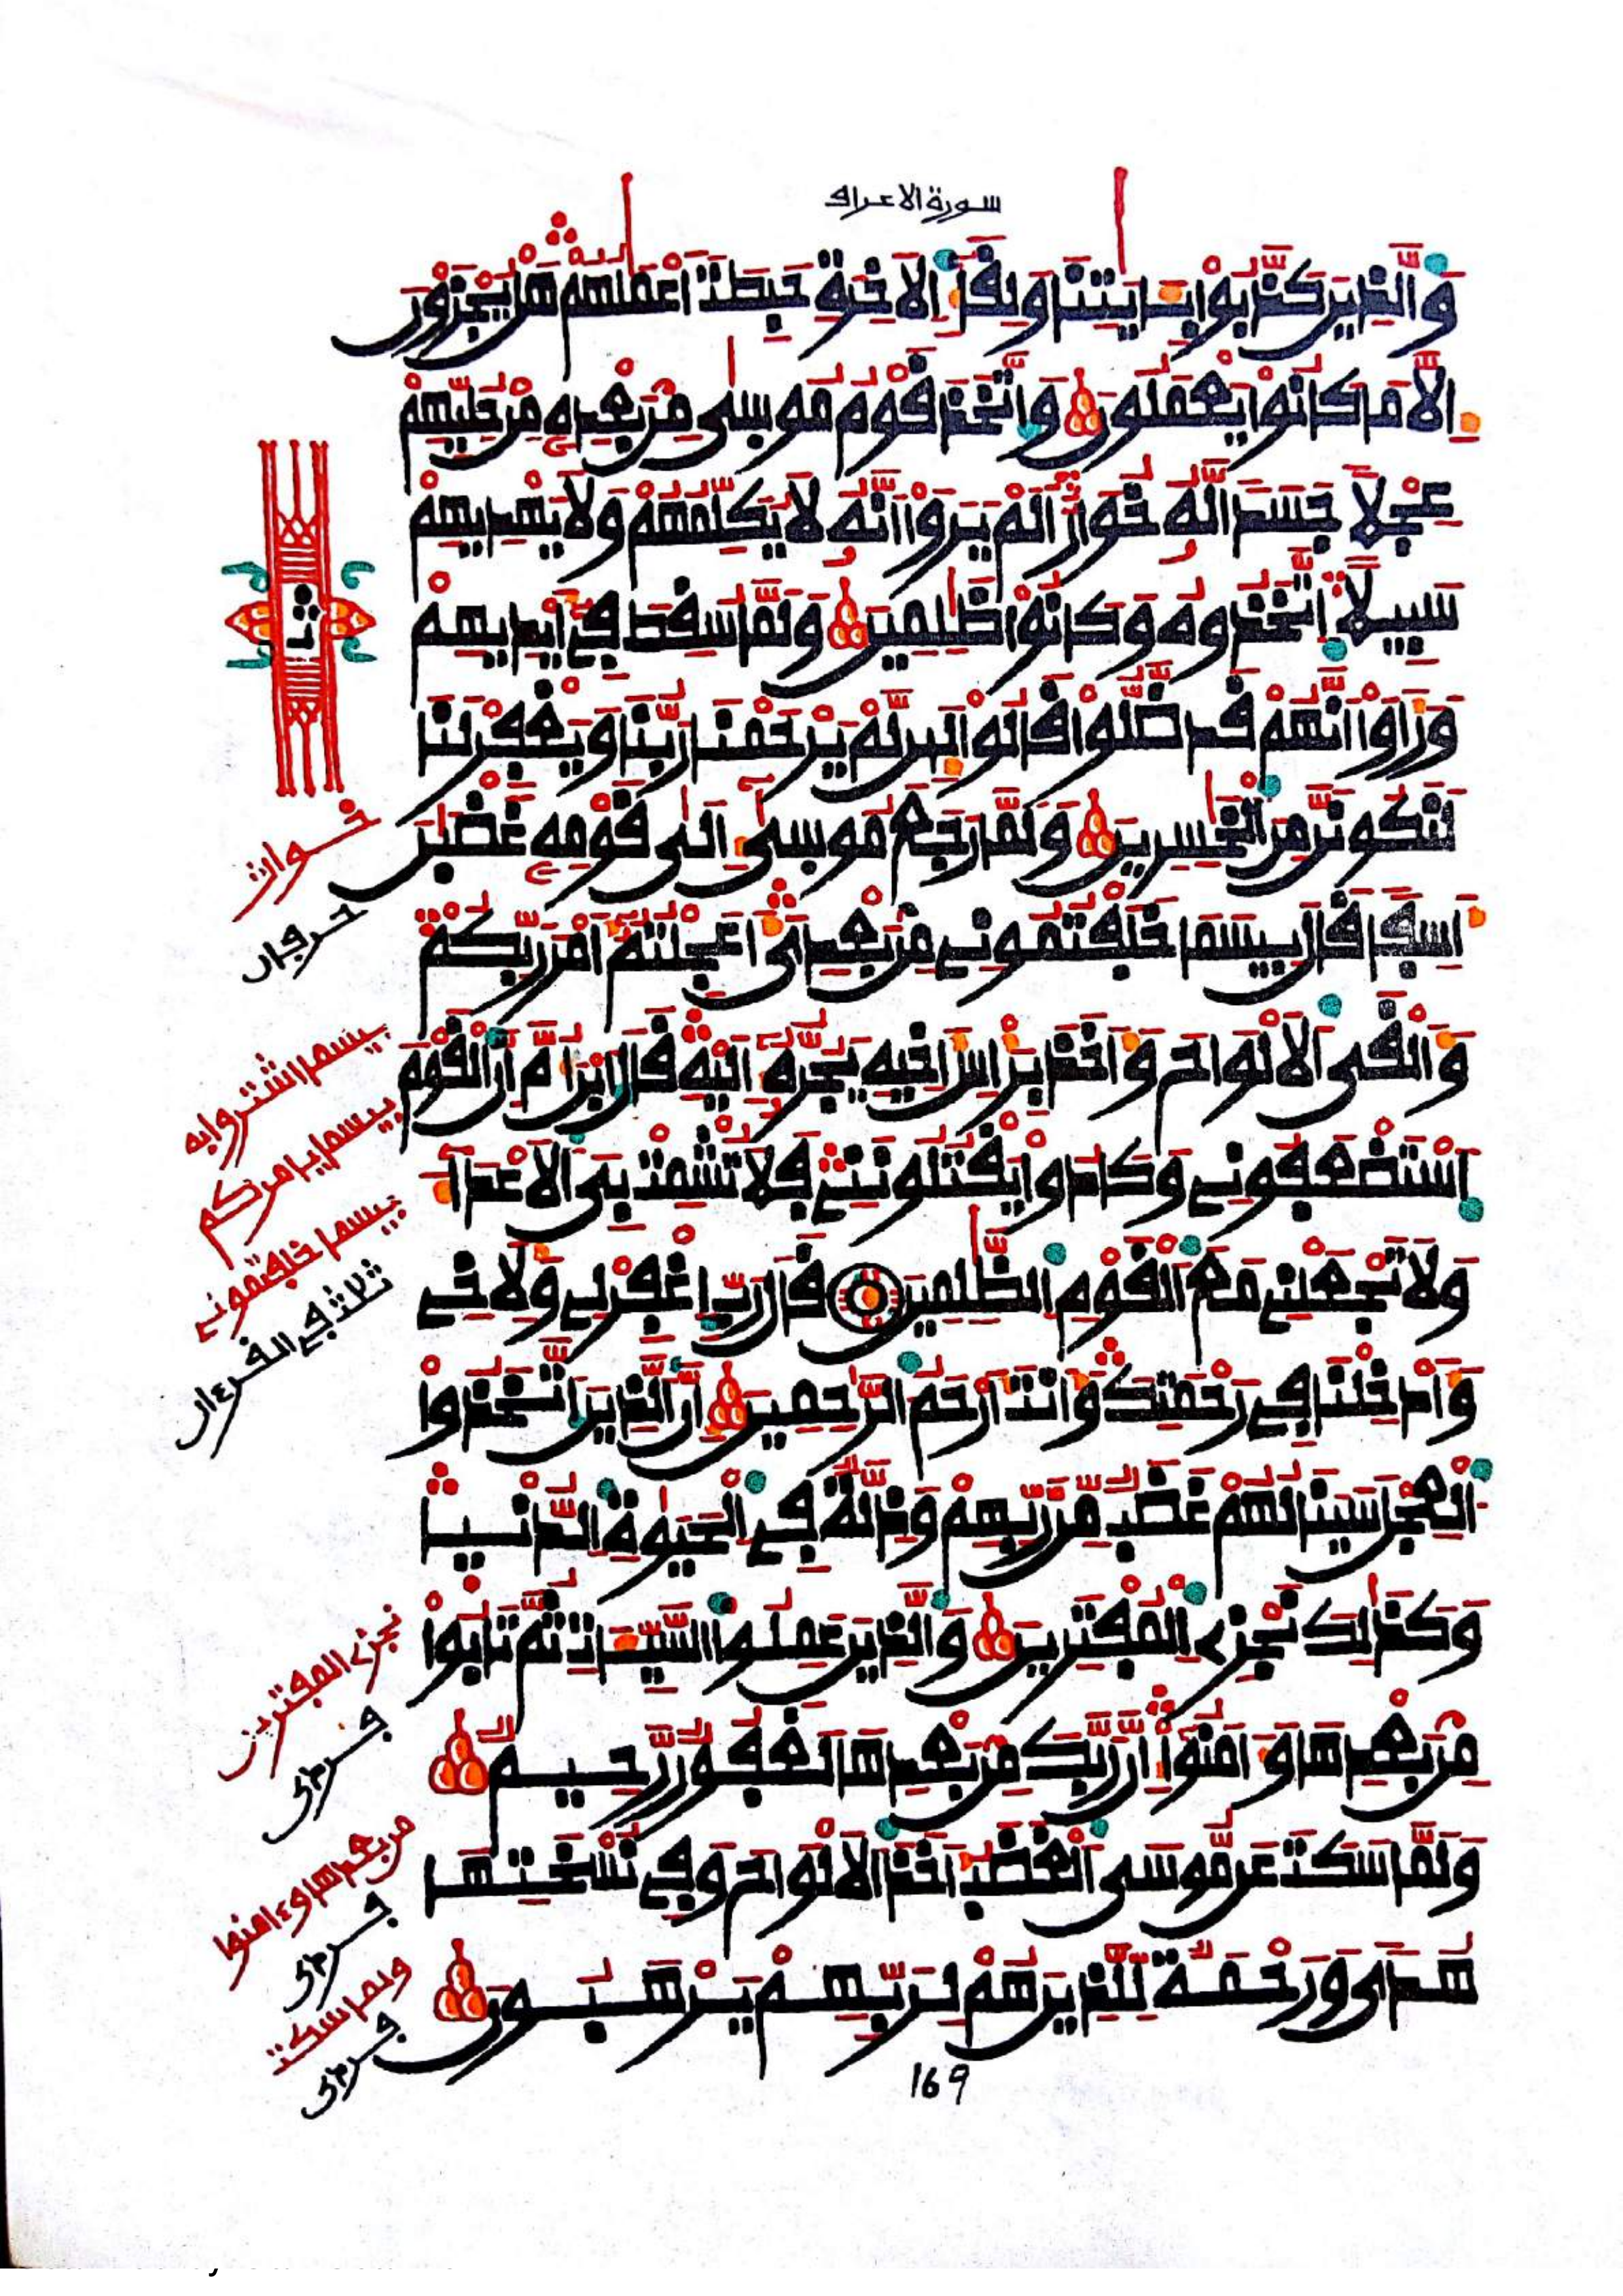 سورة الاعراف
وَالَّذِينَ كَذَّبُواْ بِـَٔايَٰتِنَا وَلِقَآءِ الَاخِرَةِ حَبِطَتَ اَعْمَٰلُهُمْ هَلْ يُجْزَوْنَ
إِلَّا مَا كَانُواْ يَعْمَلُونَ وَاتَّخَذَ قَوْمُ مُوسَىٰ مِنۢ بَعْدِهِۦ مِنْ حُلِيِّهِمْ
عِجْلاً جَسَداً لَّهُۥ خُوَارٌ اَلَمْ يَرَوَاْ اَنَّهُۥ لَا يُكَلِّمُهُمْ وَلَا يَهْدِيهِمْ
سَبِيلاً اِتَّخَذُوهُ وَكَانُواْ ظَٰلِمِينَ وَلَمَّا سُقِطَ فِےٓ أَيْدِيهِمْ
وَرَأَوَاْ اَنَّهُمْ قَد ضَّلُّواْ قَالُواْ لَئِن لَّمْ يَرْحَمْنَا رَبُّنَا وَيَغْفِرْ لَنَا
لَنَكُونَنَّ مِنَ الْخَٰسِرِينَ وَلَمَّا رَجَعَ مُوسَىٰٓ إِلَىٰ قَوْمِهِۦ غَضْبَٰنَ
أَسِفاً قَالَ بِيسَمَا خَلَفْتُمُونِے مِنۢ بَعْدِيَ أَعَجِلْتُمُۥٓ أَمْرَ رَبِّكُمْ
وَأَلْقَى الَالْوَاحَ وَأَخَذَ بِرَأْسِ أَخِيهِ يَجُرُّهُۥٓ إِلَيْهِ قَالَ اَبْنَ أُمَّ إِنَّ الْقَوْمَ
اَسْتَضْعَفُونِے وَكَادُواْ يَقْتُلُونَنِے فَلَا تُشْمِتْ بِيَ الَاعْدَآءَ
وَلَا تَجْعَلْنِے مَعَ الْقَوْمِ الظَّٰلِمِينَ قَالَ رَبِّ اِغْفِرْ لِے وَلِأَخِے
وَأَدْخِلْنَا فِے رَحْمَتِكَ وَأَنتَ أَرْحَمُ الرَّٰحِمِينَ إِنَّ الَّذِينَ اَتَّخَذُواْ
الْعِجْلَ سَيَنَالُهُمْ غَضَبٌ مِّن رَّبِّهِمْ وَذِلَّةٌ فِے الْحَيَوٰةِ الدُّنْيَا
وَكَذَٰلِكَ نَجْزِے الْمُفْتَرِينَ وَالَّذِينَ عَمِلُواْ السَّيِّـَٔاتِ ثُمَّ تَابُواْ
مِنۢ بَعْدِهَا وَءَامَنُوٓاْ إِنَّ رَبَّكَ مِنۢ بَعْدِهَا لَغَفُورٌ رَّحِيمٌ
وَلَمَّا سَكَتَ عَن مُّوسَى الْغَضَبُ أَخَذَ الَالْوَاحَ وَفِے نُسْخَتِهَا
هُدىً وَرَحْمَةٌ لِّلَّذِينَ هُمْ لِرَبِّهِمْ يَرْهَبُونَ
ثمن
خوار
حرفان
بيسما اشتروا به
بيسما يامركم
بيسما خلفتموني
ثلاث في القرءان
نجزي المفترين
من بعدها وءامنوا
ولما سكت
169